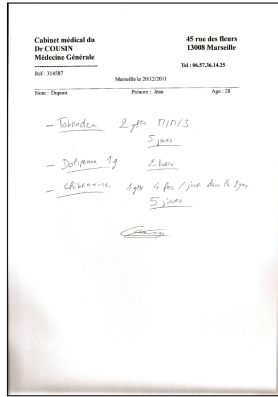 Cabinet médical du
Dr COUSIN
Médecine Générale
45 rue des fleurs
13008 Marseille
Tél : 06.57.36.14.25
Réf : 314587
Marseille le 20/12/2011
Nom : Dupont Prénom : Jean Age : 28
- Tobradex 2 gttes
5 jours
- Doliprane 1g 2 boites
- Chibroxine 1 gtte 4 fois / jour dans les yeux
5 jours